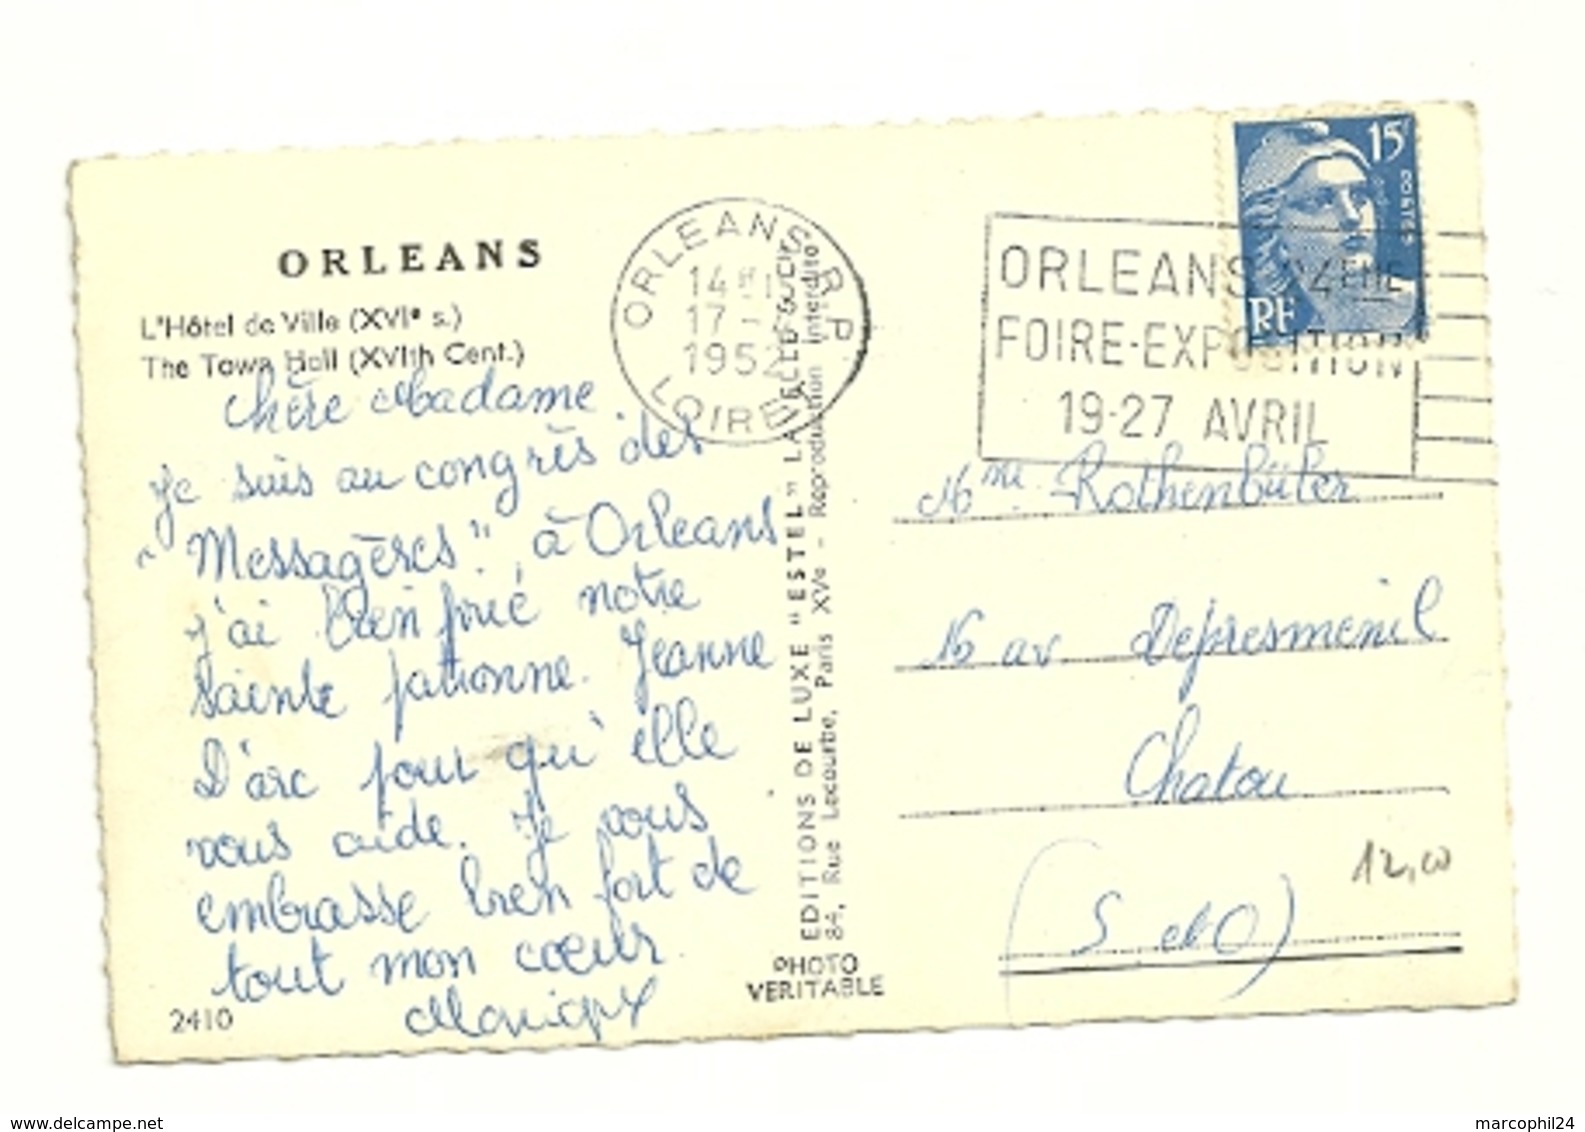 ORLEANS
L'Hôtel de Ville (XVIe s.)
The Town Hall (XVIth Cent.)
Chère Madame
Je suis au congrès des
"Messagères", à Orleans
j'ai bien prié notre
Sainte patronne. Jeanne
D'arc pour qu'elle
vous aide. Je vous
embrasse bien fort de
tout mon cœur
Monique
2410
ORLEANS R.P
14H
17 -
1952
LOIRET
EDITIONS DE LUXE "ESTEL" LA
84, Rue Lecourbe, Paris XVe - Reproduction interdite
PHOTO
VERITABLE
15F
POSTES
RF
ORLEANS 24EME
FOIRE-EXPOSITION
19-27 AVRIL
Mme Rothenbüler
16 av Depresmenil
Chatou
(S et O)
12,00
www.delcampe.net
marcophil24